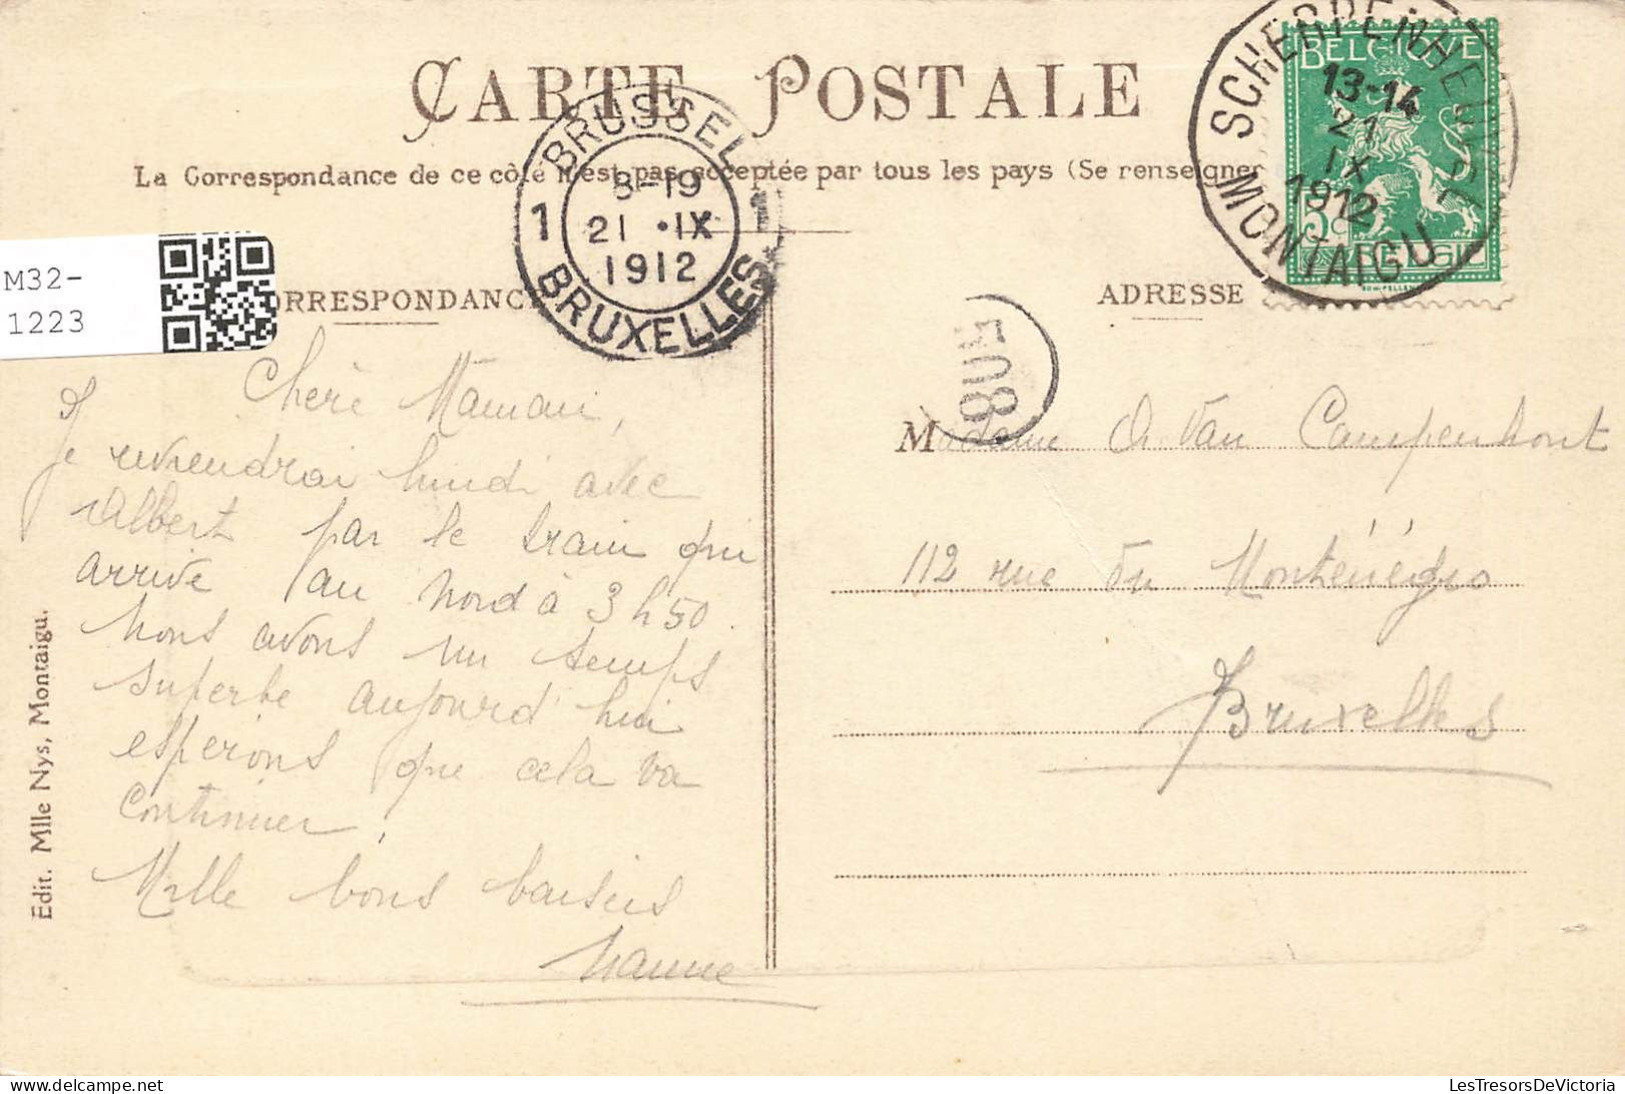 CARTE POSTALE
La Correspondance de ce côté n'est pas acceptée par tous les pays (Se renseigner
BRUSSEL
1 8-19 1
21 •IX
1912
BRUXELLES
SCHERPENHEUVEL
13-14
21
IX
1912
MONTAIGU
BELGIQUE
5c
BELGIË
M32-
1223
ORRESPONDANC
ADRESSE
Chère Maman,
Je reviendrai lundi avec
Albert par le train qui
arrive au Nord à 3 h 50.
Nous avons un temps
superbe aujourd'hui
esperons que cela va
continuer.
Mille bons baisers
Madame Van Campenhout
112 rue du Monténégro
Bruxelles
Edit. Mlle Nys, Montaigu.
LesTresorsDeVictoria
delcampe.net